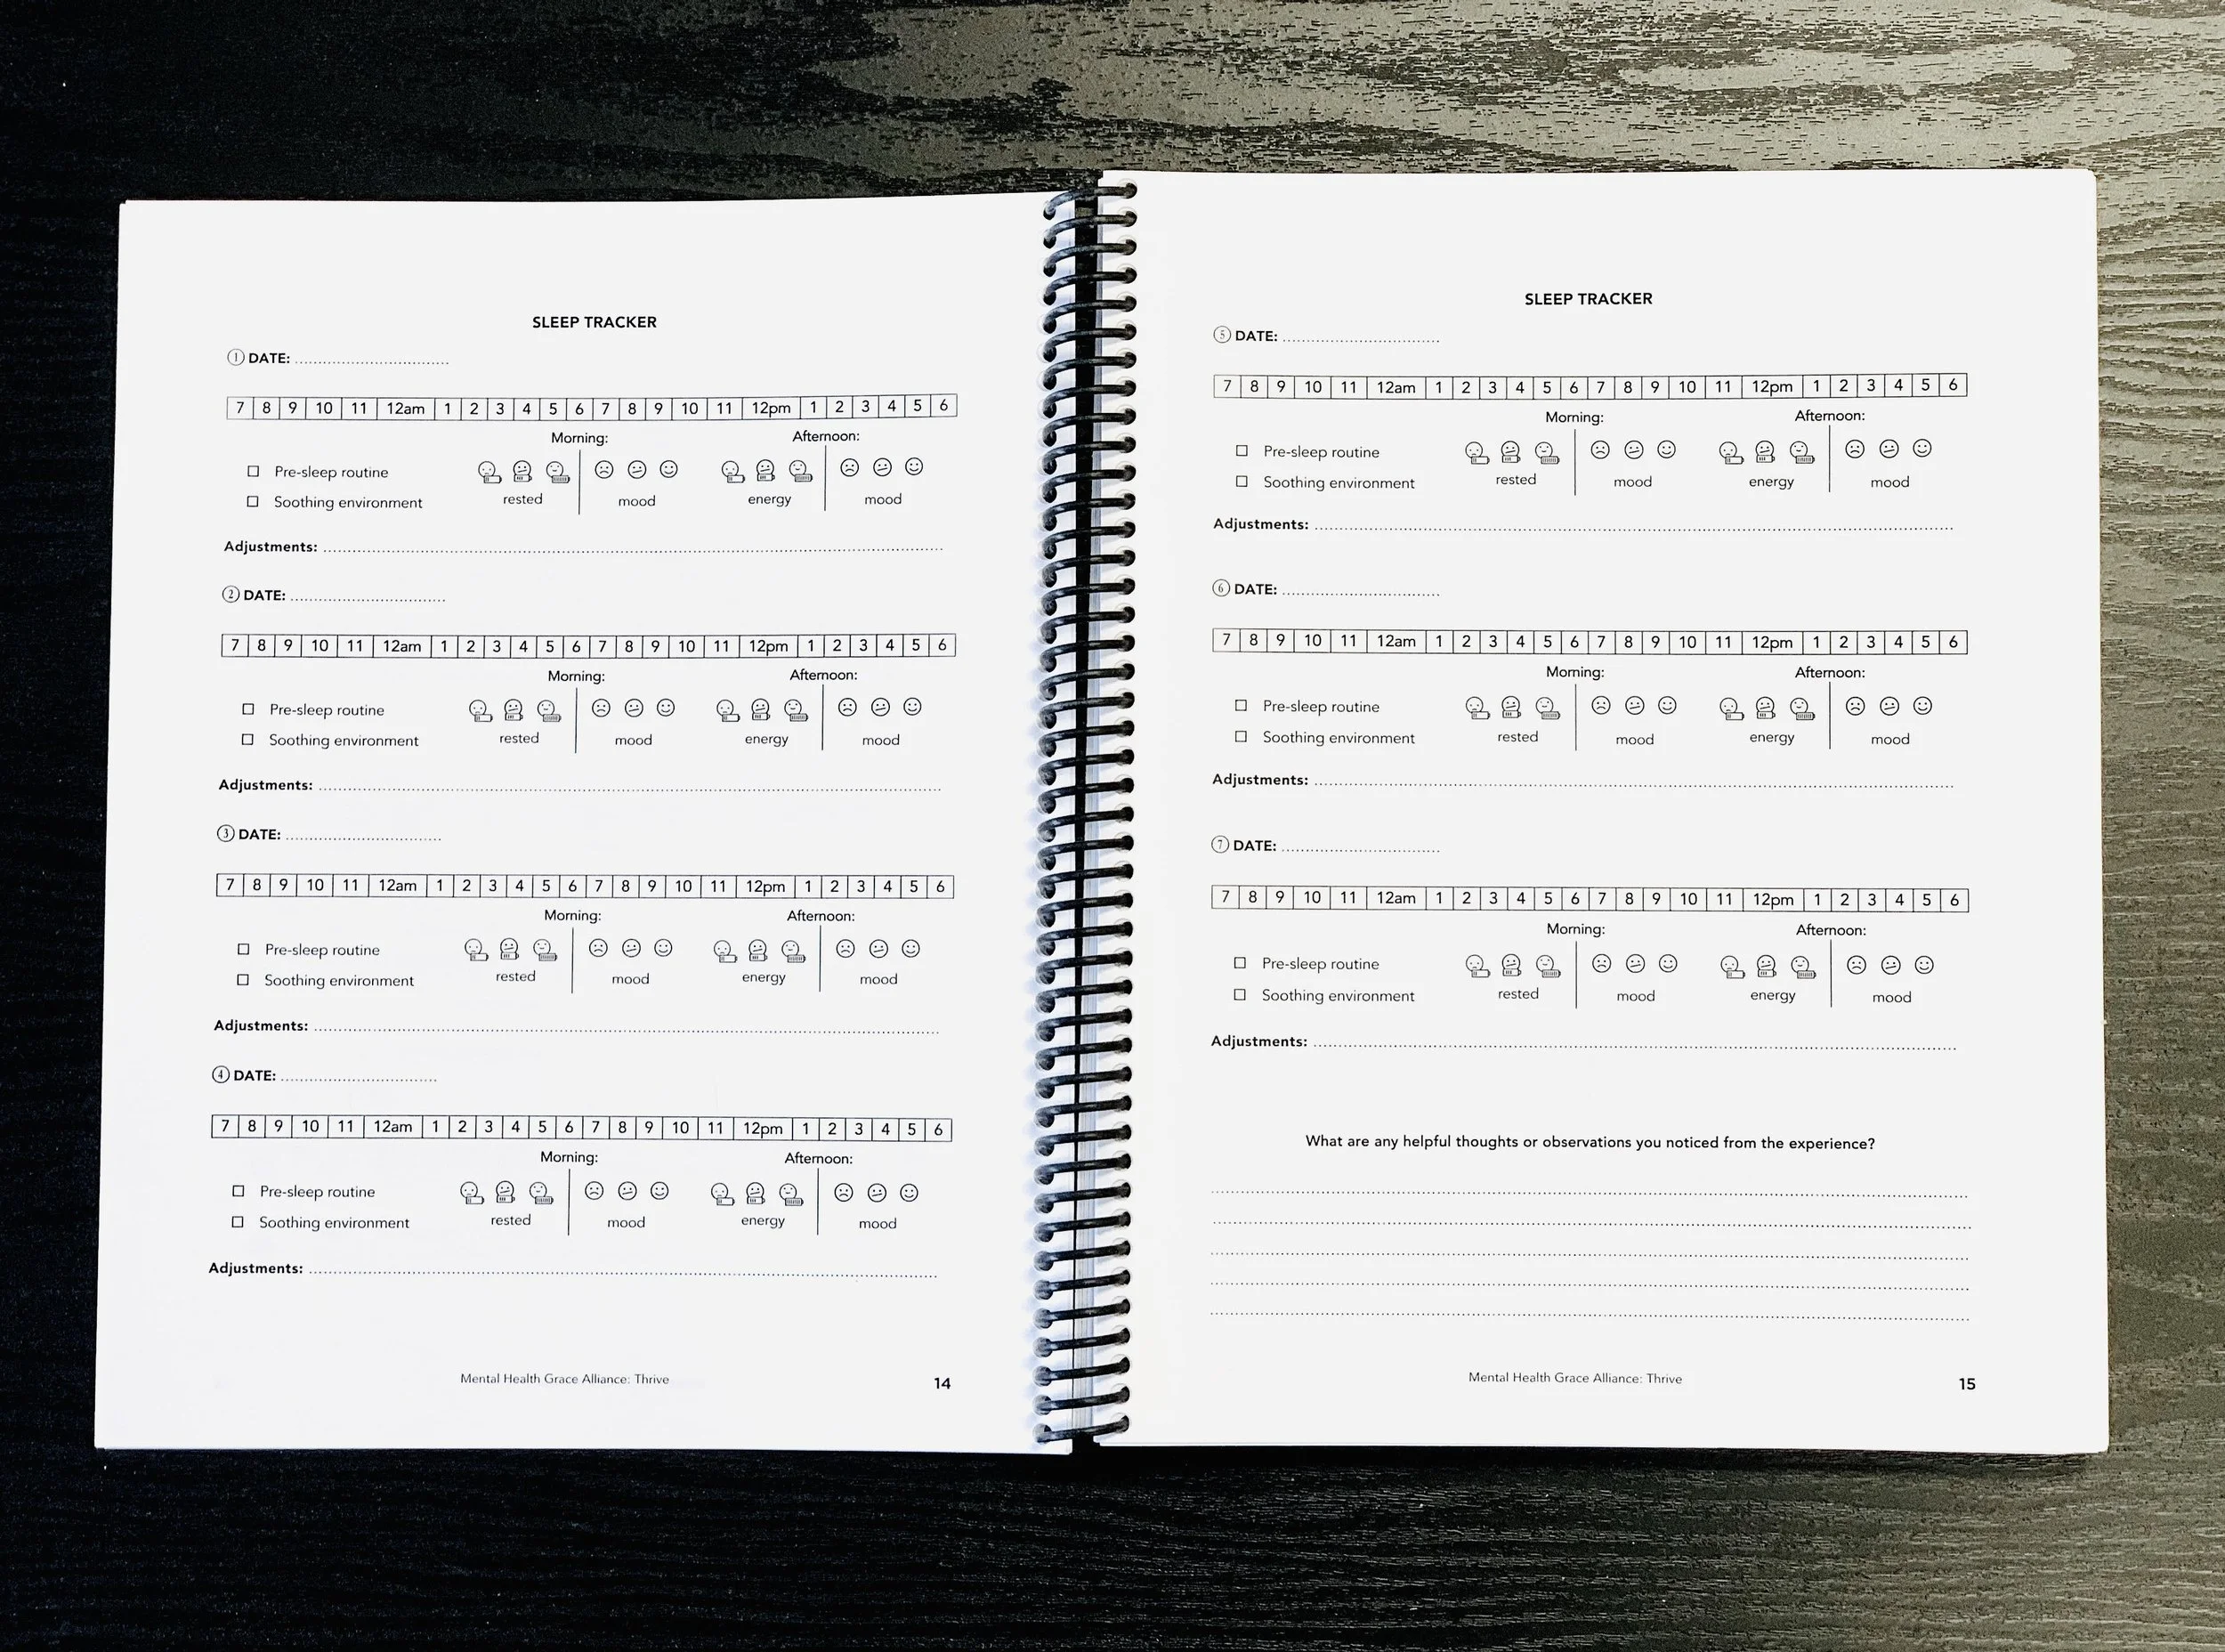 SLEEP TRACKER
① DATE: ..............................
7 8 9 10 11 12am 1 2 3 4 5 6 7 8 9 10 11 12pm 1 2 3 4 5 6
Morning: Afternoon:
☐ Pre-sleep routine
☐ Soothing environment rested mood energy mood
Adjustments: ..............................
② DATE: ..............................
7 8 9 10 11 12am 1 2 3 4 5 6 7 8 9 10 11 12pm 1 2 3 4 5 6
Morning: Afternoon:
☐ Pre-sleep routine
☐ Soothing environment rested mood energy mood
Adjustments: ..............................
③ DATE: ..............................
7 8 9 10 11 12am 1 2 3 4 5 6 7 8 9 10 11 12pm 1 2 3 4 5 6
Morning: Afternoon:
☐ Pre-sleep routine
☐ Soothing environment rested mood energy mood
Adjustments: ..............................
④ DATE: ..............................
7 8 9 10 11 12am 1 2 3 4 5 6 7 8 9 10 11 12pm 1 2 3 4 5 6
Morning: Afternoon:
☐ Pre-sleep routine
☐ Soothing environment rested mood energy mood
Adjustments: ..............................
Mental Health Grace Alliance: Thrive 14
SLEEP TRACKER
⑤ DATE: ..............................
7 8 9 10 11 12am 1 2 3 4 5 6 7 8 9 10 11 12pm 1 2 3 4 5 6
Morning: Afternoon:
☐ Pre-sleep routine
☐ Soothing environment rested mood energy mood
Adjustments: ..............................
⑥ DATE: ..............................
7 8 9 10 11 12am 1 2 3 4 5 6 7 8 9 10 11 12pm 1 2 3 4 5 6
Morning: Afternoon:
☐ Pre-sleep routine
☐ Soothing environment rested mood energy mood
Adjustments: ..............................
⑦ DATE: ..............................
7 8 9 10 11 12am 1 2 3 4 5 6 7 8 9 10 11 12pm 1 2 3 4 5 6
Morning: Afternoon:
☐ Pre-sleep routine
☐ Soothing environment rested mood energy mood
Adjustments: ..............................
What are any helpful thoughts or observations you noticed from the experience?
Mental Health Grace Alliance: Thrive 15